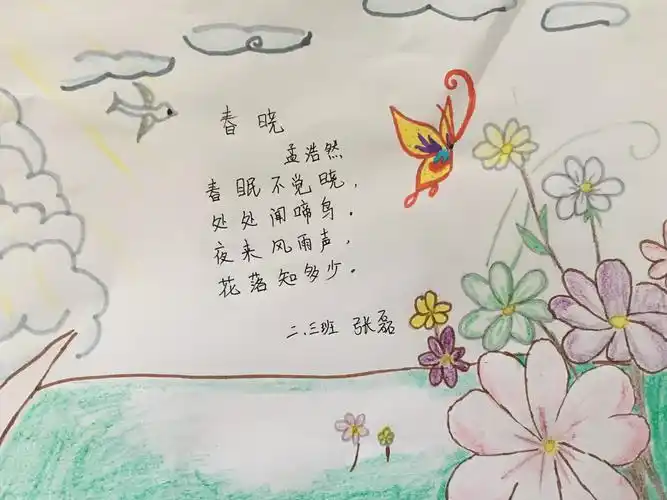 春晓
孟浩然
春眠不觉晓，
处处闻啼鸟。
夜来风雨声，
花落知多少。
二.三班 张磊